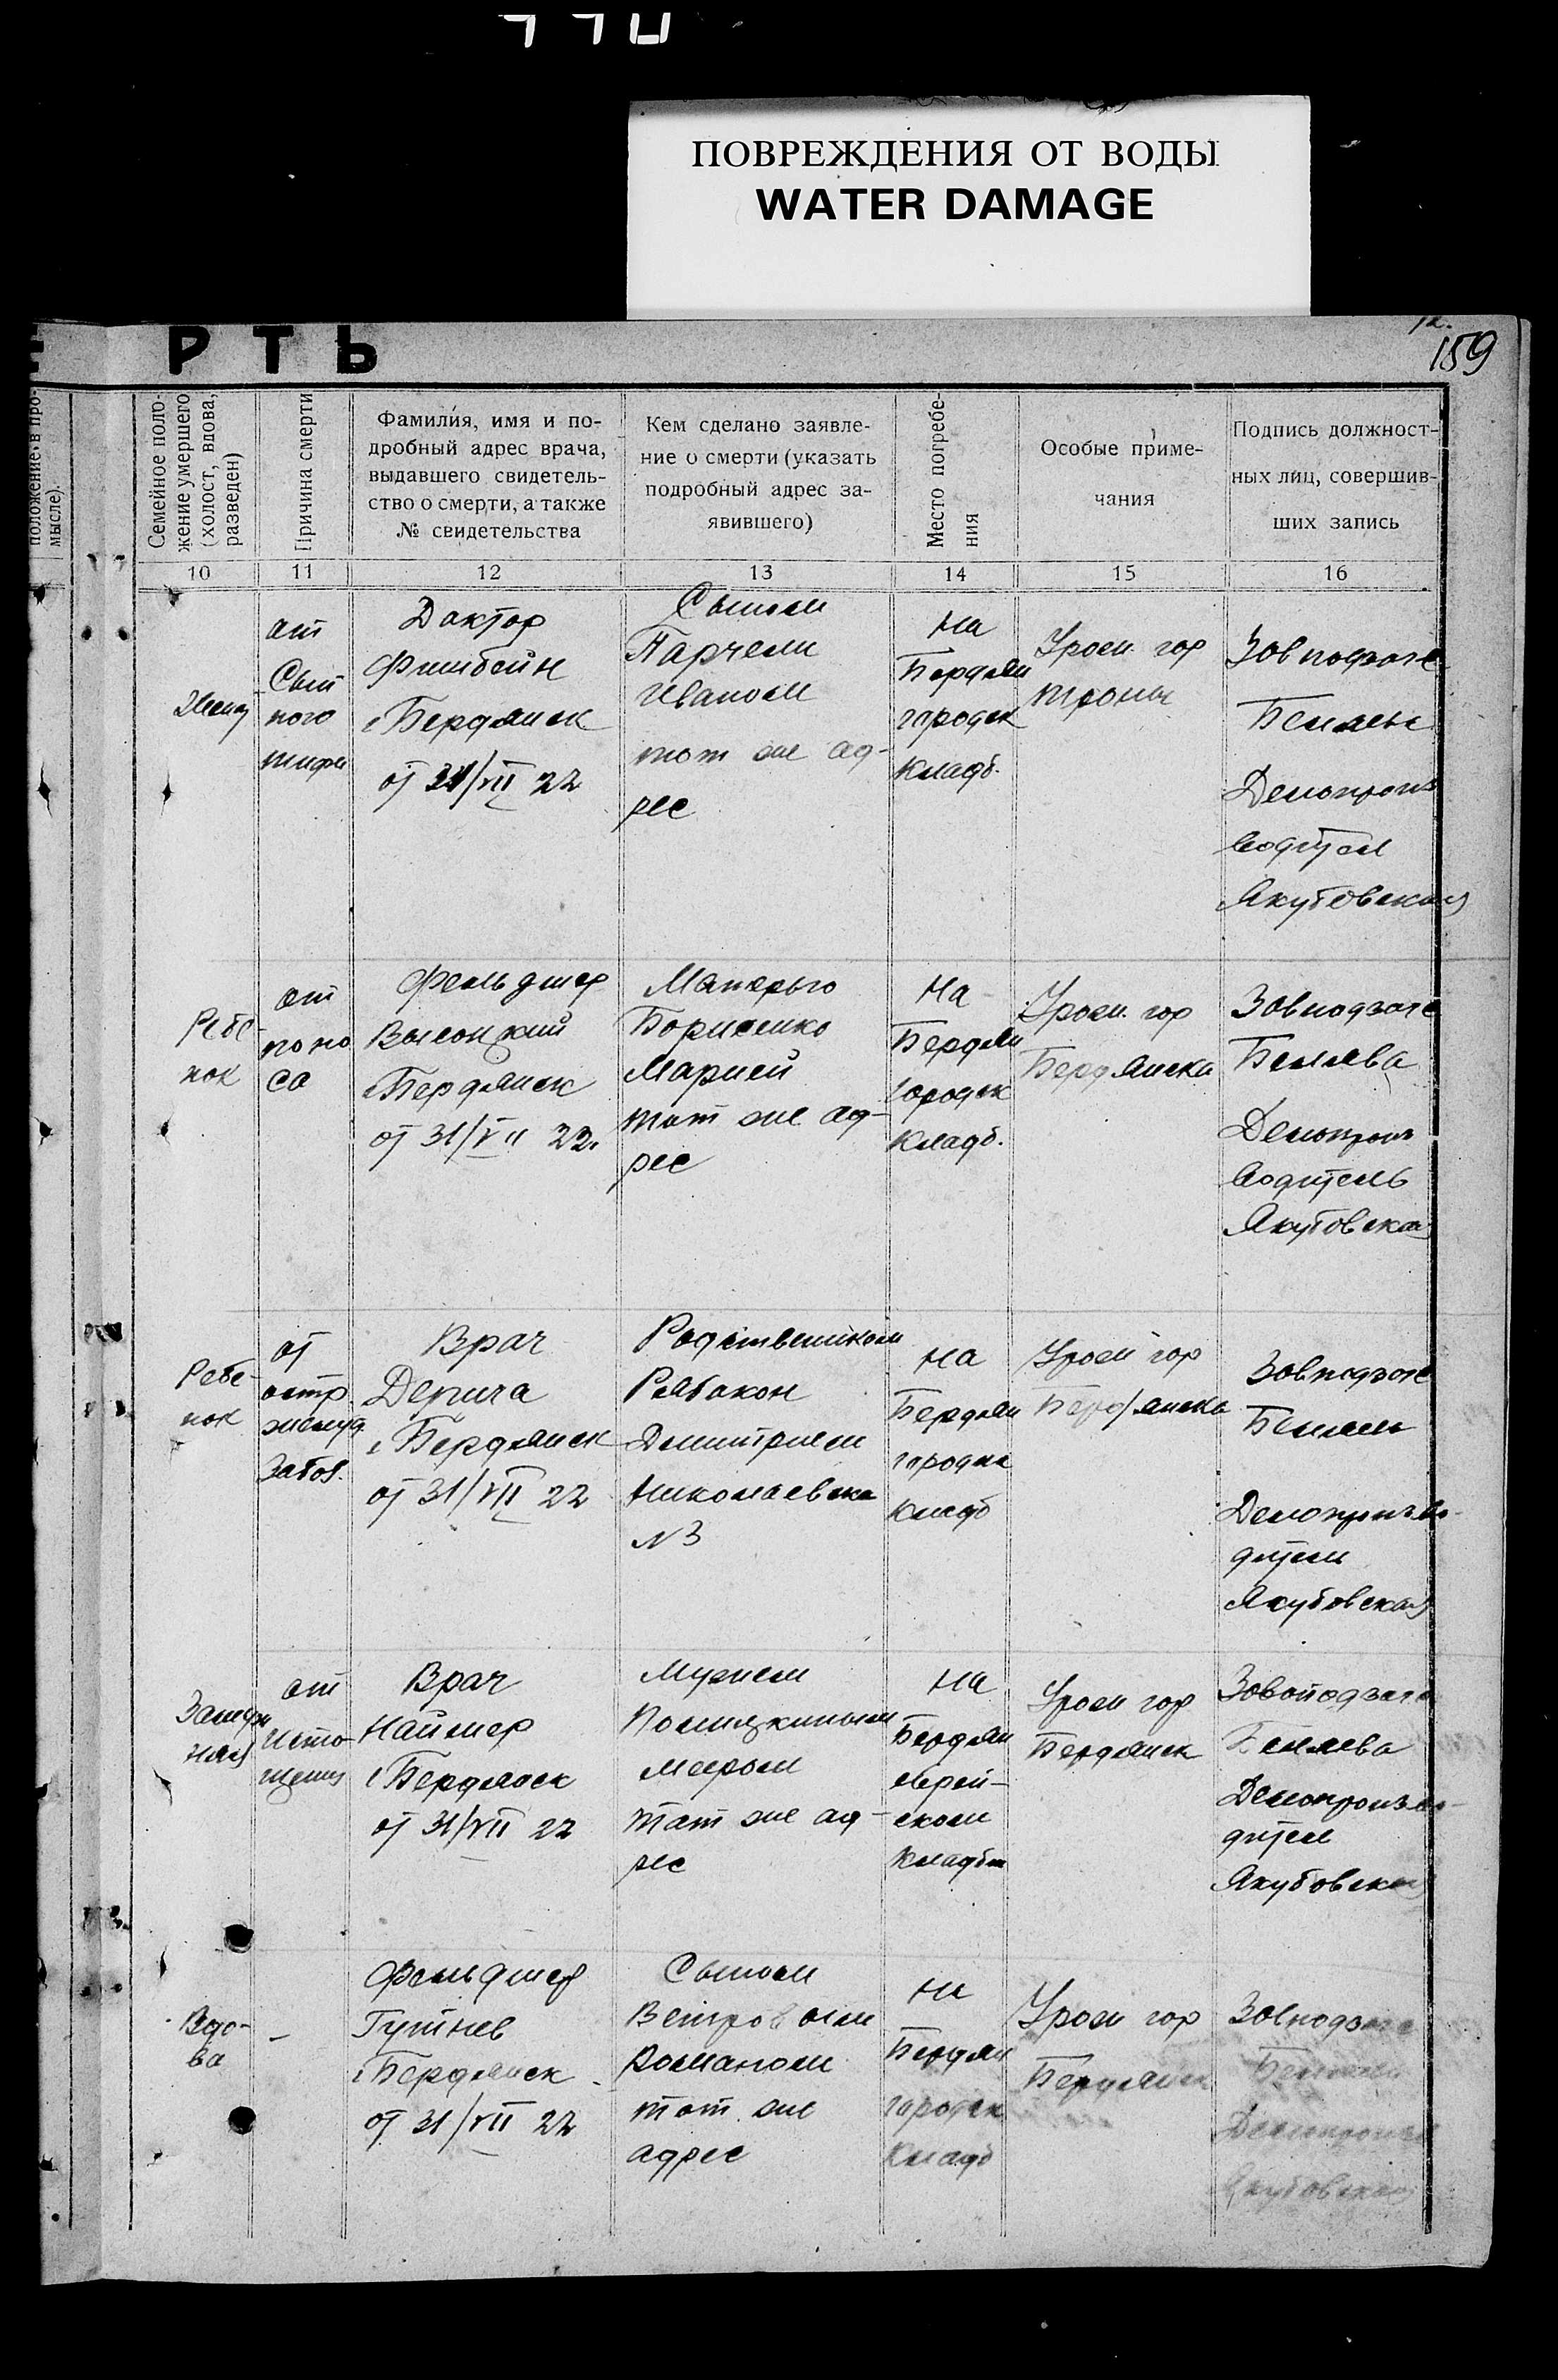 ПОВРЕЖДЕНИЯ ОТ ВОДЫ
WATER DAMAGE
РТЬ
159
положение в про-
мысле).
Семейное поло-
жение умершего
(холост, вдова,
разведен)
Причина смерти
Фамилия, имя и по-
дробный адрес врача,
выдавшего свидетель-
ство о смерти, а также
№ свидетельства
Кем сделано заявле-
ние о смерти (указать
подробный адрес за-
явившего)
Место погребе-
ния
Особые приме-
чания
Подпись должност-
ных лиц, совершив-
ших запись
10
11
12
13
14
15
16
от
Сып
ного
тифа
Доктор
Фишбейн
г Бердянск
от 31/VII 22
Сыном
Парчели
Иваном
тот же ад-
рес
На
Бердян
городск
кладб.
Урож. гор
Завподзаге
Делопроиз
водител
Якубовская
Ребе-
нок
от
поно
са
Фельдшер
Высоцкий
г Бердянск
от 31/VII 22.
Матерью
Борисенко
Марией
тот же ад-
рес
На
Бердян
городск
кладб.
Урож. гор
Бердянска
Завподзаге
Беляева
Делопроиз
водитель
Якубовская
Ребе-
нок
от
остр
желуд
забол.
Врач
Дерича
г Бердянск
от 31/VII 22
Родственником
Рябакон
Дмитрием
Николаевска
N 3
На
Бердян
городск
кладб
Урож гор
Бердянска
Завподзаге
Делопроизво-
дител
Якубовская
Замуж
няя
от
исто-
щения
Врач
Наймер
г Бердянск
от 31/VII 22
Мужем
Меером
тот же ад-
рес
На
Бердян
еврей-
ском
кладби
Урож гор
Бердянск
Завподзаге
Беляева
Делопроизво-
дител
Якубовская
Вдо-
ва
–
Фельдшер
Гутнев
г Бердянск
от 31/VII 22
Сыном
Ветровым
Романом
тот же
адрес
На
Бердян
городск
кладб
Урож гор
Бердянск
Завподзаге
Делопроизв
Якубовская